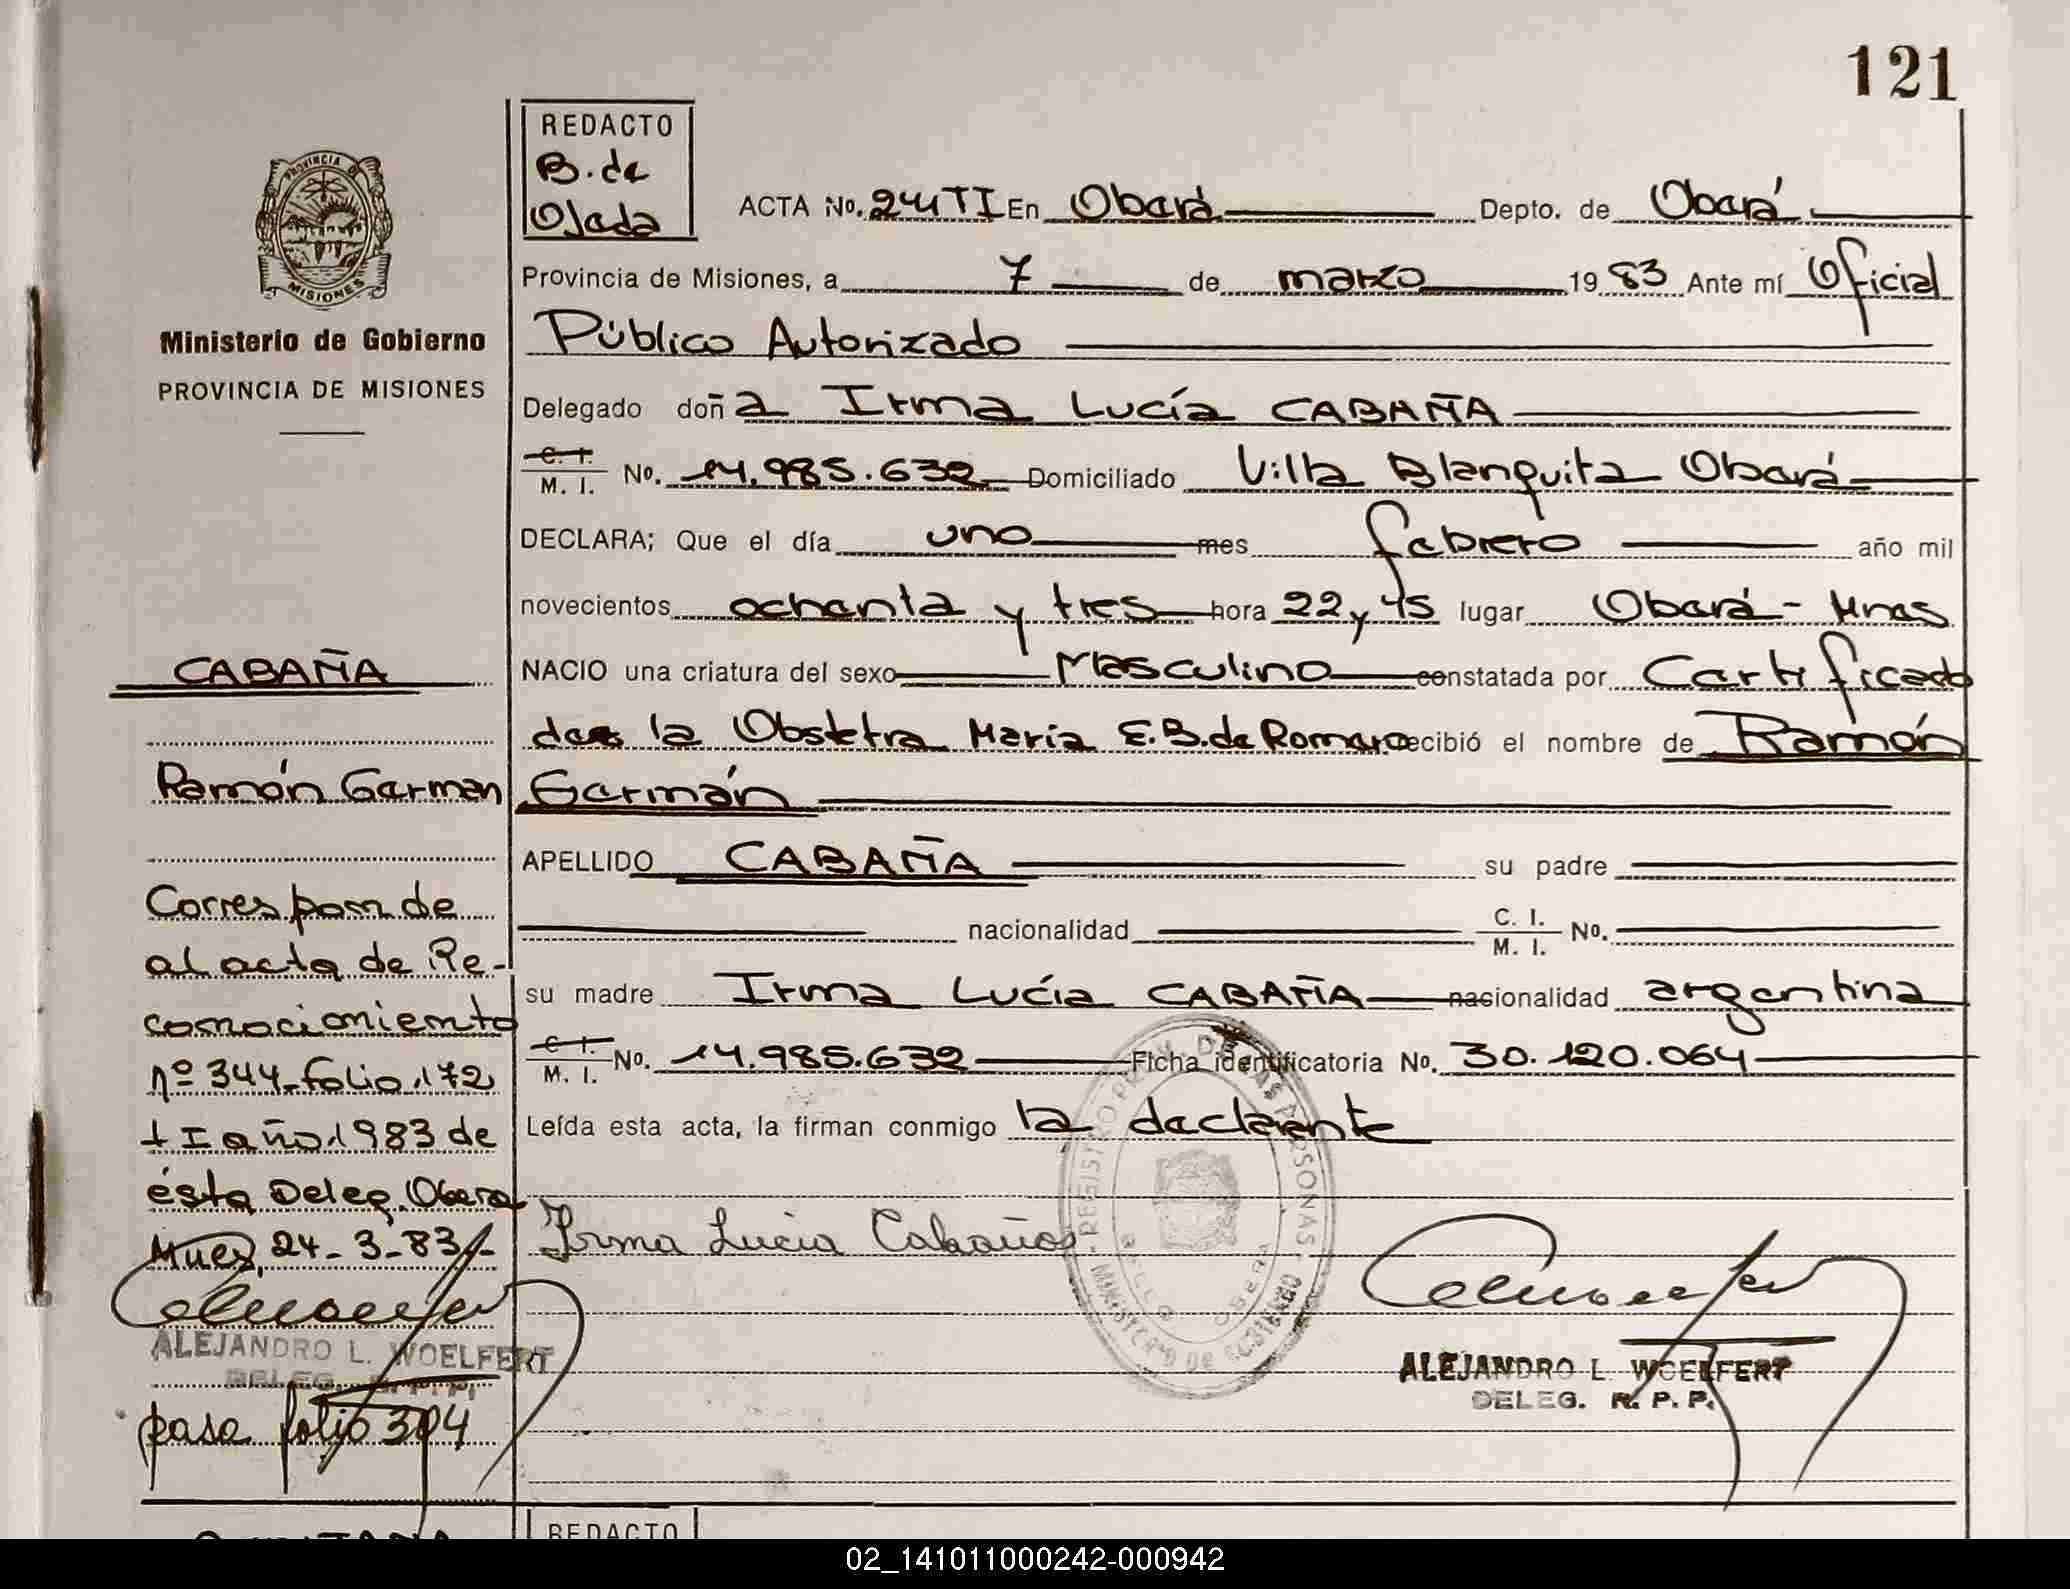 121
REDACTO
B. de
Ojeda
ACTA No. 241 TI En Oberá Depto. de Oberá
Provincia de Misiones, a 7 de marzo 1983 Ante mí Oficial
Público Autorizado
Delegado doña Irma Lucía CABAÑA
C. I.
M. I. No. 14.985.632 Domiciliado Villa Blanquita Oberá
DECLARA; Que el día uno mes febrero año mil
novecientos ochenta y tres hora 22 y 45 lugar Oberá - Mnes
NACIO una criatura del sexo Masculino constatada por Certificado
de la Obstetra María E. B. de Romero recibió el nombre de Ramón
Germán
APELLIDO CABAÑA su padre
nacionalidad C. I.
M. I. No.
su madre Irma Lucía CABAÑA nacionalidad argentina
C. I.
M. I. No. 14.985.632 Ficha identificatoria No. 30.120.064
Leída esta acta, la firman conmigo la declarante
Irma Lucia Cabañas
REGISTRO PROV. DE LAS PERSONAS - MINISTERIO DE GOBIERNO
SELLO OBERA
ALEJANDRO L. WOELFERT
DELEG. R. P. P.
PROVINCIA DE
MISIONES
Ministerio de Gobierno
PROVINCIA DE MISIONES
CABAÑA
Ramón Germán
Corresponde
al acta de Re-
conocimiento
nº 344 folio 172
t I año 1983 de
ésta Deleg. Obera
Mnes, 24-3-83
ALEJANDRO L. WOELFERT
DELEG. R. P. P.
pasa folio 304
REDACTO
02_141011000242-000942